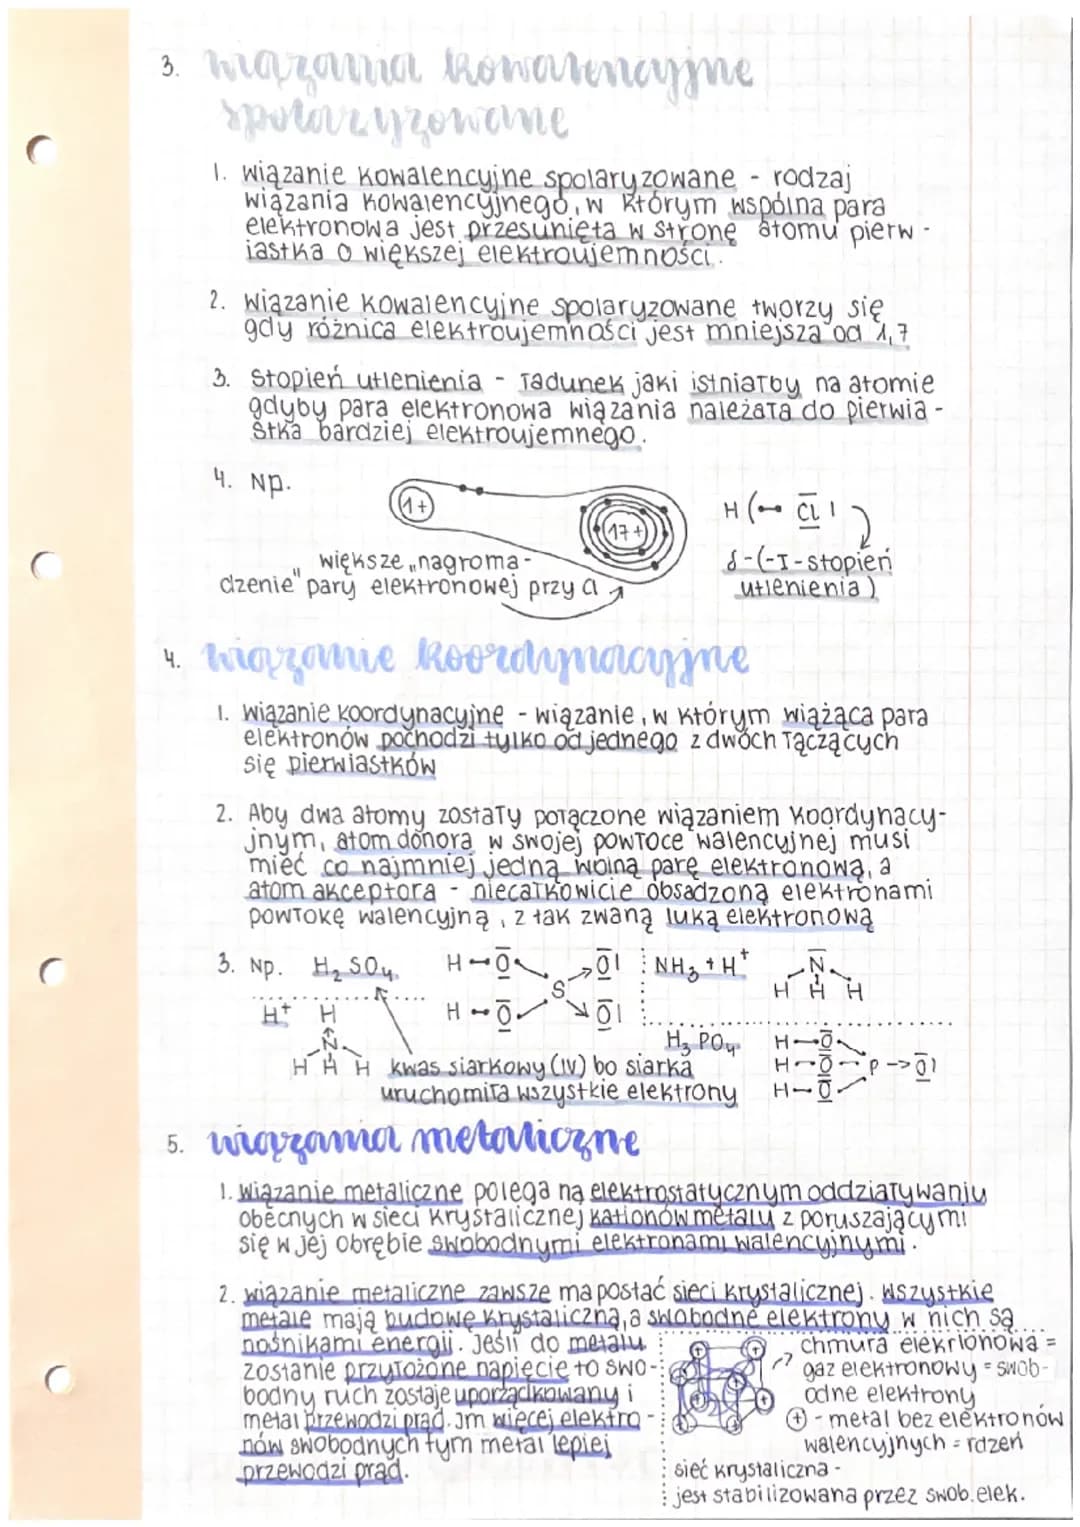 3. wiązania kowalencyjne
spolaryzowane
1. wiązanie kowalencyjne spolaryzowane - rodzaj
wiązania kowalencyjnego, w którym wspólna para
elektronowa jest przesunięta w stronę atomu pierw-
iastka o większej elektroujemności.
2. wiązanie kowalencyjne spolaryzowane tworzy się
gdy różnica elektroujemności jest mniejsza od 1,7
3. Stopień utlenienia - ładunek jaki istniałby na atomie
gdyby para elektronowa wiązania należała do pierwia-
stka bardziej elektroujemnego.
4. Np.
1+
17+
H Cl
większe „nagroma-
dzenie" pary elektronowej przy Cl
δ-(-I-stopień
utlenienia)
4. wiązanie koordynacyjne
1. wiązanie koordynacyjne - wiązanie, w którym wiążąca para
elektronów pochodzi tylko od jednego z dwóch łączących
się pierwiastków
2. Aby dwa atomy zostały połączone wiązaniem koordynacy-
jnym, atom donora w swojej powłoce walencyjnej musi
mieć co najmniej jedną wolną parę elektronową, a
atom akceptora - niecałkowicie obsadzoną elektronami
powłokę walencyjną, z tak zwaną luką elektronową
3. Np. H₂SO₄
H O O
S
H O O
NH₃ + H⁺
N
H H H
H⁺ H
N
H H H
kwas siarkowy (IV) bo siarka
uruchomiła wszystkie elektrony
H₃PO₄
H O
H O P → O
H O
5. wiązania metaliczne
1. wiązanie metaliczne polega na elektrostatycznym oddziaływaniu
obecnych w sieci krystalicznej kationów metalu z poruszającymi
się w jej obrębie swobodnymi elektronami walencyjnymi.
2. wiązanie metaliczne zawsze ma postać sieci krystalicznej. Wszystkie
metale mają budowę krystaliczną, a swobodne elektrony w nich są
nośnikami energii. Jeśli do metalu
zostanie przyłożone napięcie to swo-
bodny ruch zostaje uporządkowany i
metal przewodzi prąd. Im więcej elektro-
nów swobodnych tym metal lepiej
przewodzi prąd.
chmura elekrionowa =
gaz elektronowy = swob-
odne elektrony
+ - metal bez elektronów
walencyjnych = rdzeń
sieć krystaliczna -
jest stabilizowana przez swob. elek.